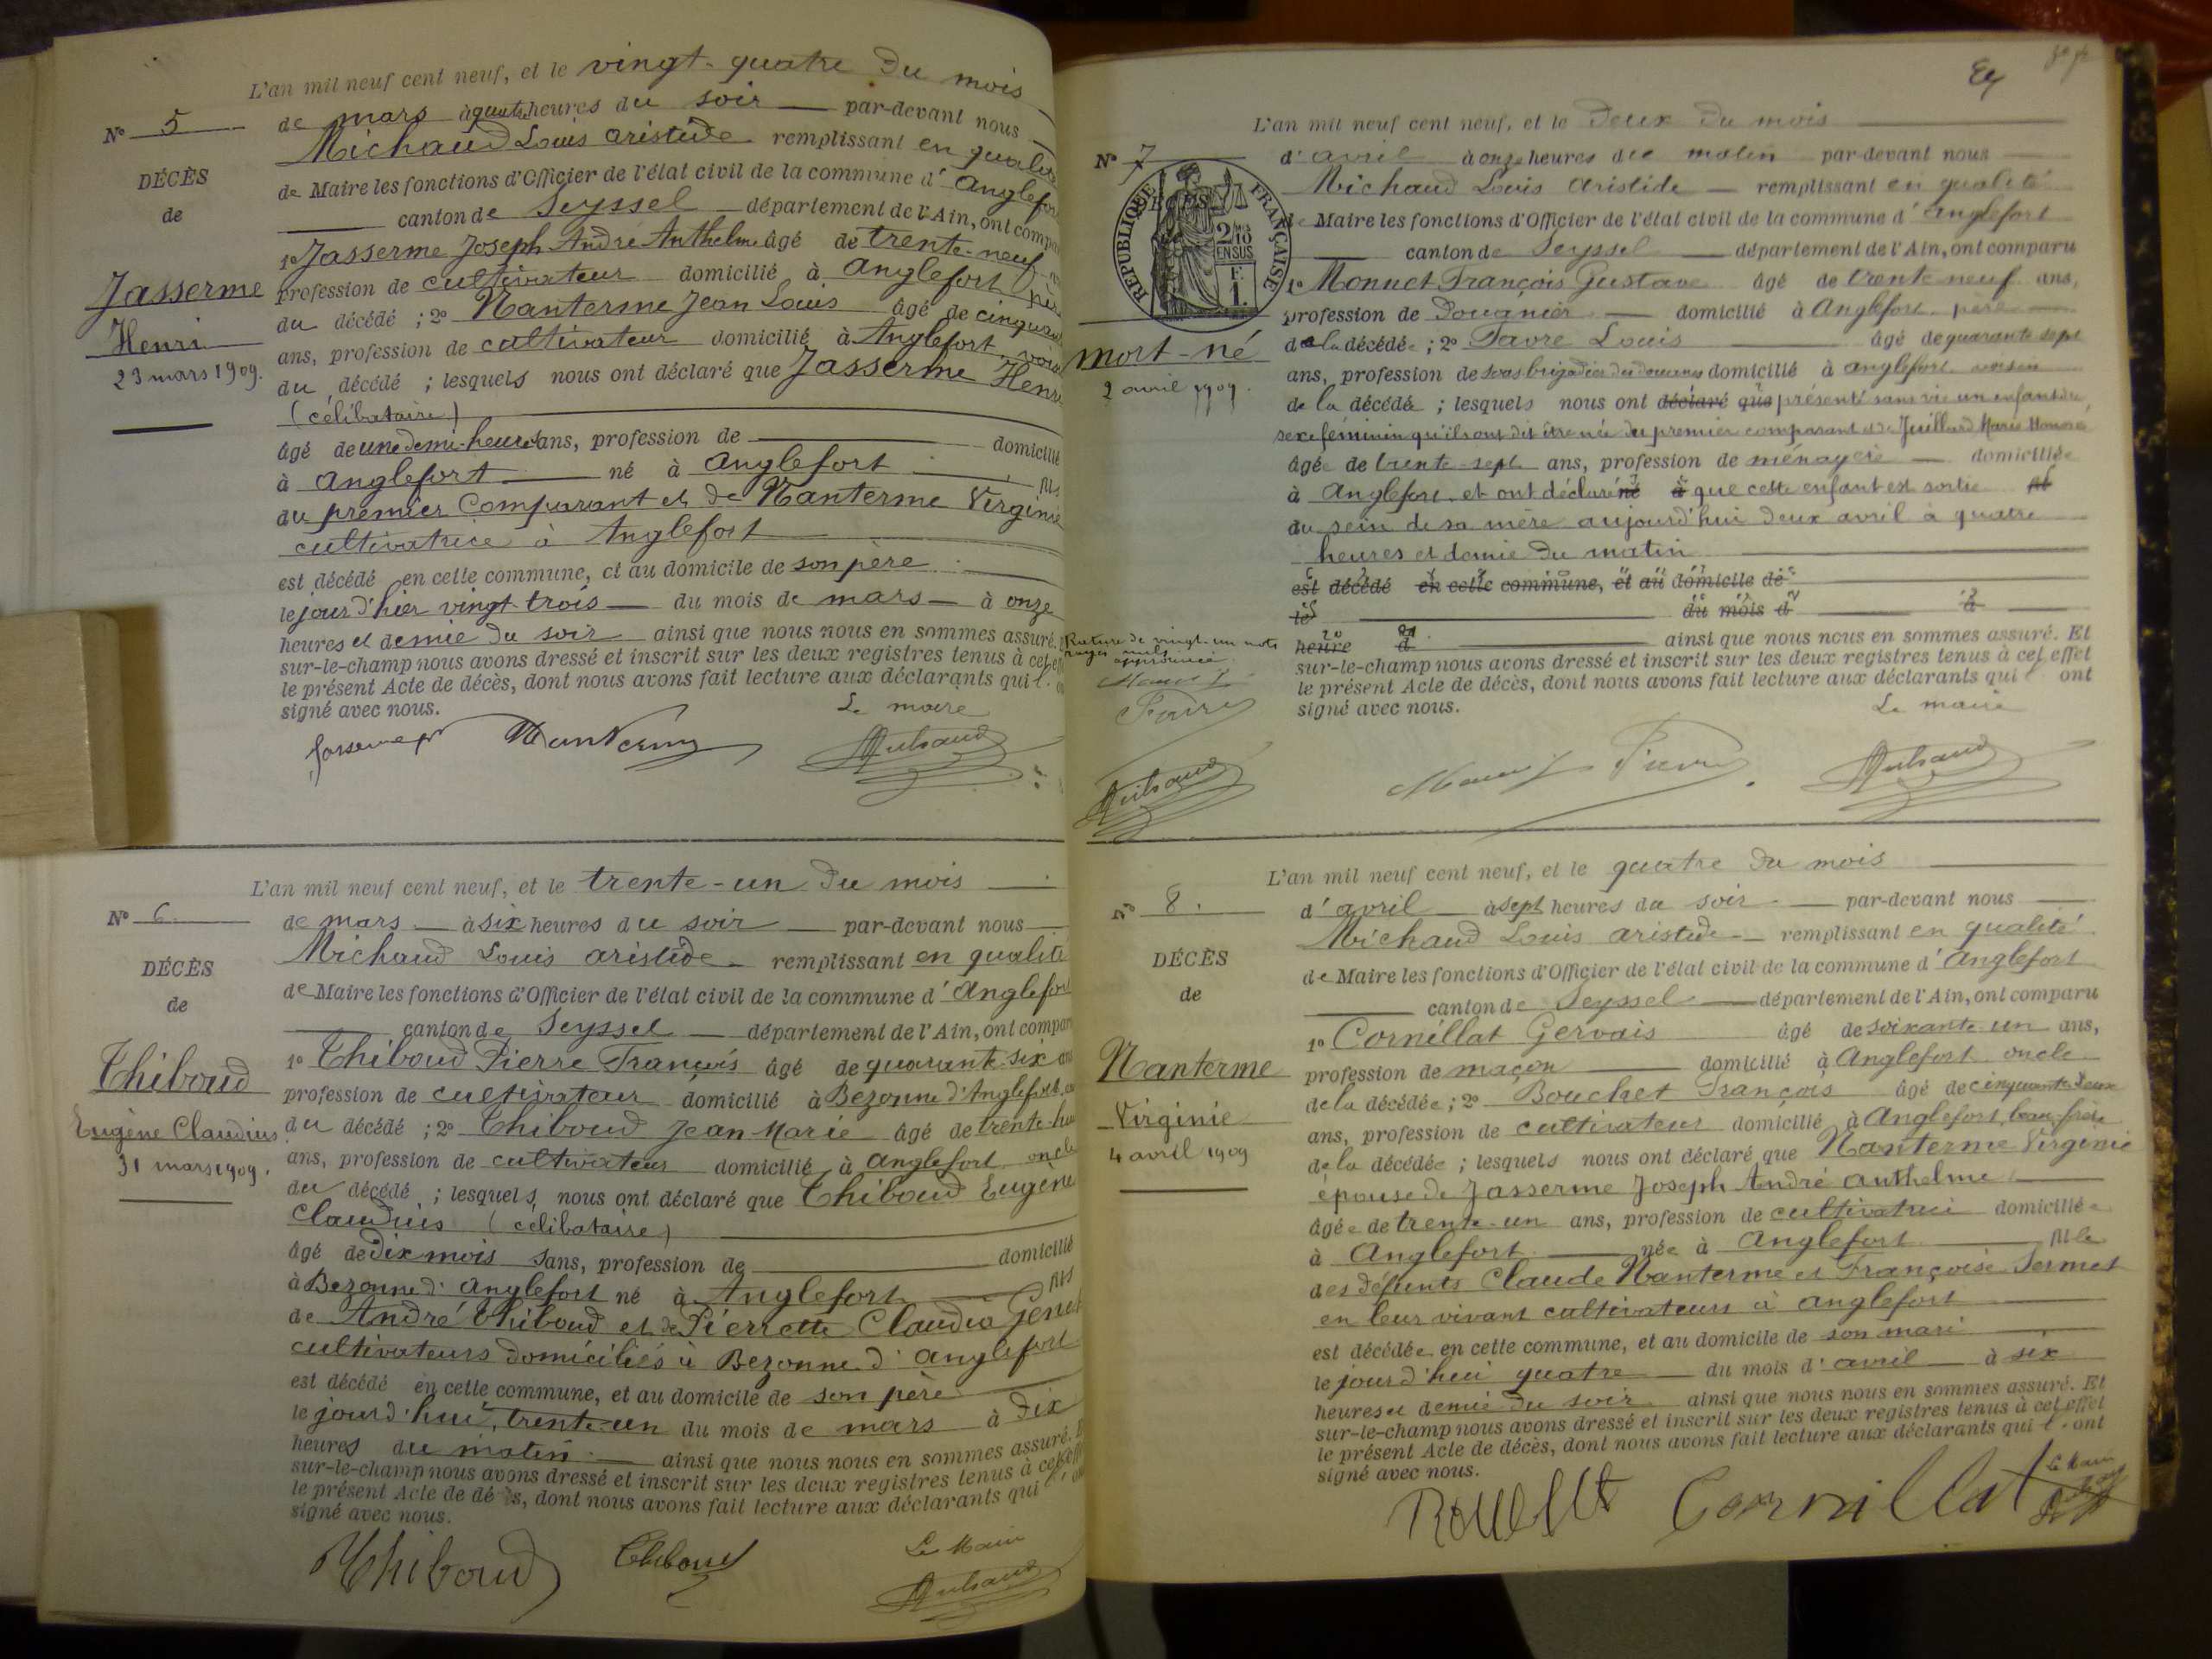 N° 5
DÉCÈS
de
Jasserme
Henri
23 mars 1909.
L'an mil neuf cent neuf, et le vingt-quatre du mois
de mars à quatre heures du soir par-devant nous
Michaud Louis Aristide remplissant en qualité
de Maire les fonctions d'Officier de l'état civil de la commune d'Anglefort
canton de Seyssel département de l'Ain, ont compa
1° Jasserme Joseph André Anthelme âgé de trente-neuf
profession de cultivateur domicilié à Anglefort père
du décédé ; 2° Nanterme Jean Louis âgé de cinquan
ans, profession de cultivateur domicilié à Anglefort voisin
du décédé ; lesquels nous ont déclaré que Jasserme Henri
(célibataire)
âgé de une demi-heure ans, profession de domicilié
à Anglefort né à Anglefort fils
du premier Comparant et de Nanterme Virginie
cultivatrice à Anglefort
est décédé en cette commune, et au domicile de son père
le jour d'hier vingt-trois du mois de mars à onze
heures et demie du soir ainsi que nous nous en sommes assuré.
sur-le-champ nous avons dressé et inscrit sur les deux registres tenus à cet
le présent Acte de décès, dont nous avons fait lecture aux déclarants qui
signé avec nous.
Le maire
Nanterme
Michaud
N° 6
DÉCÈS
de
Thiboud
Eugène Claudius
31 mars 1909.
L'an mil neuf cent neuf, et le trente-un du mois
de mars à six heures du soir par-devant nous
Michaud Louis Aristide remplissant en qualité
de Maire les fonctions d'Officier de l'état civil de la commune d'Anglefort
canton de Seyssel département de l'Ain, ont compar
1° Thiboud Pierre François âgé de quarante-six ans
profession de cultivateur domicilié à Bezonne d'Anglefort
du décédé ; 2° Thiboud Jean-Marie âgé de trente-hui
ans, profession de cultivateur domicilié à Anglefort oncle
du décédé ; lesquels nous ont déclaré que Thiboud Eugène
Claudius (célibataire)
âgé de dix mois sans, profession de domicilié
à Bezonne d'Anglefort né à Anglefort fils
de André Thiboud et de Pierrette Claudia Genet
cultivateurs domiciliés à Bezonne d'Anglefort
est décédé en cette commune, et au domicile de son père
le jourd'hui, trente-un du mois de mars à dix
heures du matin ainsi que nous nous en sommes assuré.
sur-le-champ nous avons dressé et inscrit sur les deux registres tenus à cet effet
le présent Acte de dé s, dont nous avons fait lecture aux déclarants qui
signé avec nous.
Thiboud Thiboud
Le Maire
Michaud
N° 7
RÉPUBLIQUE FRANÇAISE
2/10
EN SUS
F.
1.
mort-né
2 avril 1909.
L'an mil neuf cent neuf, et le deux du mois
d'avril à onze heures du matin par-devant nous
Michaud Louis Aristide remplissant en qualité
de Maire les fonctions d'Officier de l'état civil de la commune d'Anglefort
canton de Seyssel département de l'Ain, ont comparu
1° Monnet François Gustave âgé de trente neuf ans,
profession de Douanier domicilié à Anglefort père
de la décédée ; 2° Favre Louis âgé de quarante sept
ans, profession de sous brigadier des douanes domicilié à Anglefort voisin
de la décédée ; lesquels nous ont déclaré que présenté sans vie un enfant du
sexe féminin qu'ils ont dit être née du premier comparant et de Juilland Marie
âgée de trente-sept ans, profession de ménagère domiciliée
à Anglefort et ont déclaré né à que cette enfant est sortie fil
du sein de sa mère aujourd'hui deux avril à quatre
heures et demie du matin
est décédé en cette commune, et au domicile de
le du mois d à
heure d ainsi que nous nous en sommes assuré. Et
sur-le-champ nous avons dressé et inscrit sur les deux registres tenus à cet effet
le présent Acte de décès, dont nous avons fait lecture aux déclarants qui ont
signé avec nous.
Le maire
Rature de vingt-un mots
rayés nuls
approuvée
Monnet
Favre
Michaud
Monnet Favre Michaud
N° 8.
DÉCÈS
de
Nanterme
Virginie
4 avril 1909
L'an mil neuf cent neuf, et le quatre du mois
d'avril à sept heures du soir par-devant nous
Michaud Louis Aristide remplissant en qualité
de Maire les fonctions d'Officier de l'état civil de la commune d'Anglefort
canton de Seyssel département de l'Ain, ont comparu
1° Cornillat Gervais âgé de soixante-un ans,
profession de maçon domicilié à Anglefort oncle
de la décédée ; 2° Bouchet François âgé de cinquante deux
ans, profession de cultivateur domicilié à Anglefort, beau-frère
de la décédée ; lesquels nous ont déclaré que Nanterme Virginie
épouse de Jasserme Joseph André Anthelme
âgée de trente-un ans, profession de cultivatrice domiciliée
à Anglefort née à Anglefort fille
des défunts Claude Nanterme et Françoise Sermet
en leur vivant cultivateurs à Anglefort
est décédée en cette commune, et au domicile de son mari
le jourd'hui quatre du mois d'avril à six
heures et demie du soir ainsi que nous nous en sommes assuré. Et
sur-le-champ nous avons dressé et inscrit sur les deux registres tenus à cet effet
le présent Acte de décès, dont nous avons fait lecture aux déclarants qui l'ont
signé avec nous.
Le Maire
Cornillat